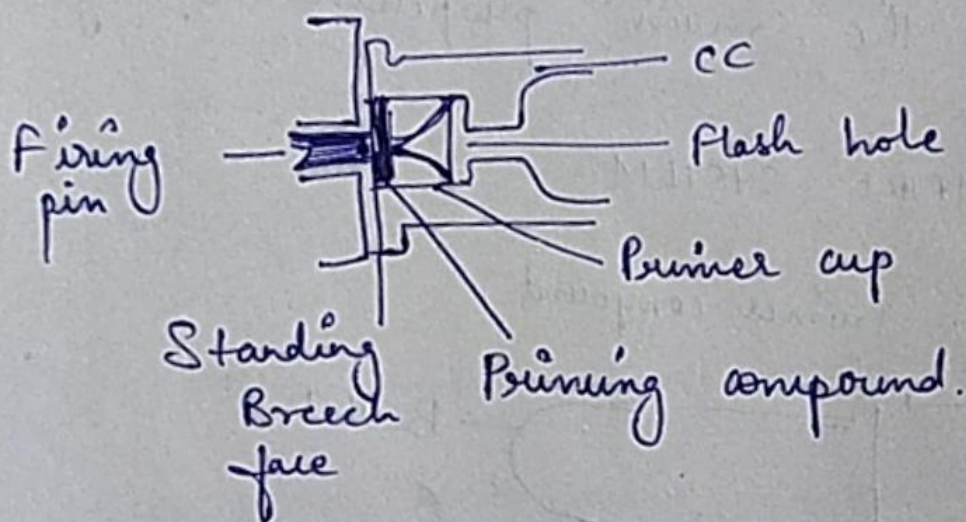 CC
Firing
pin
Flash hole
Primer cup
Priming compound.
Standing
Breech
face